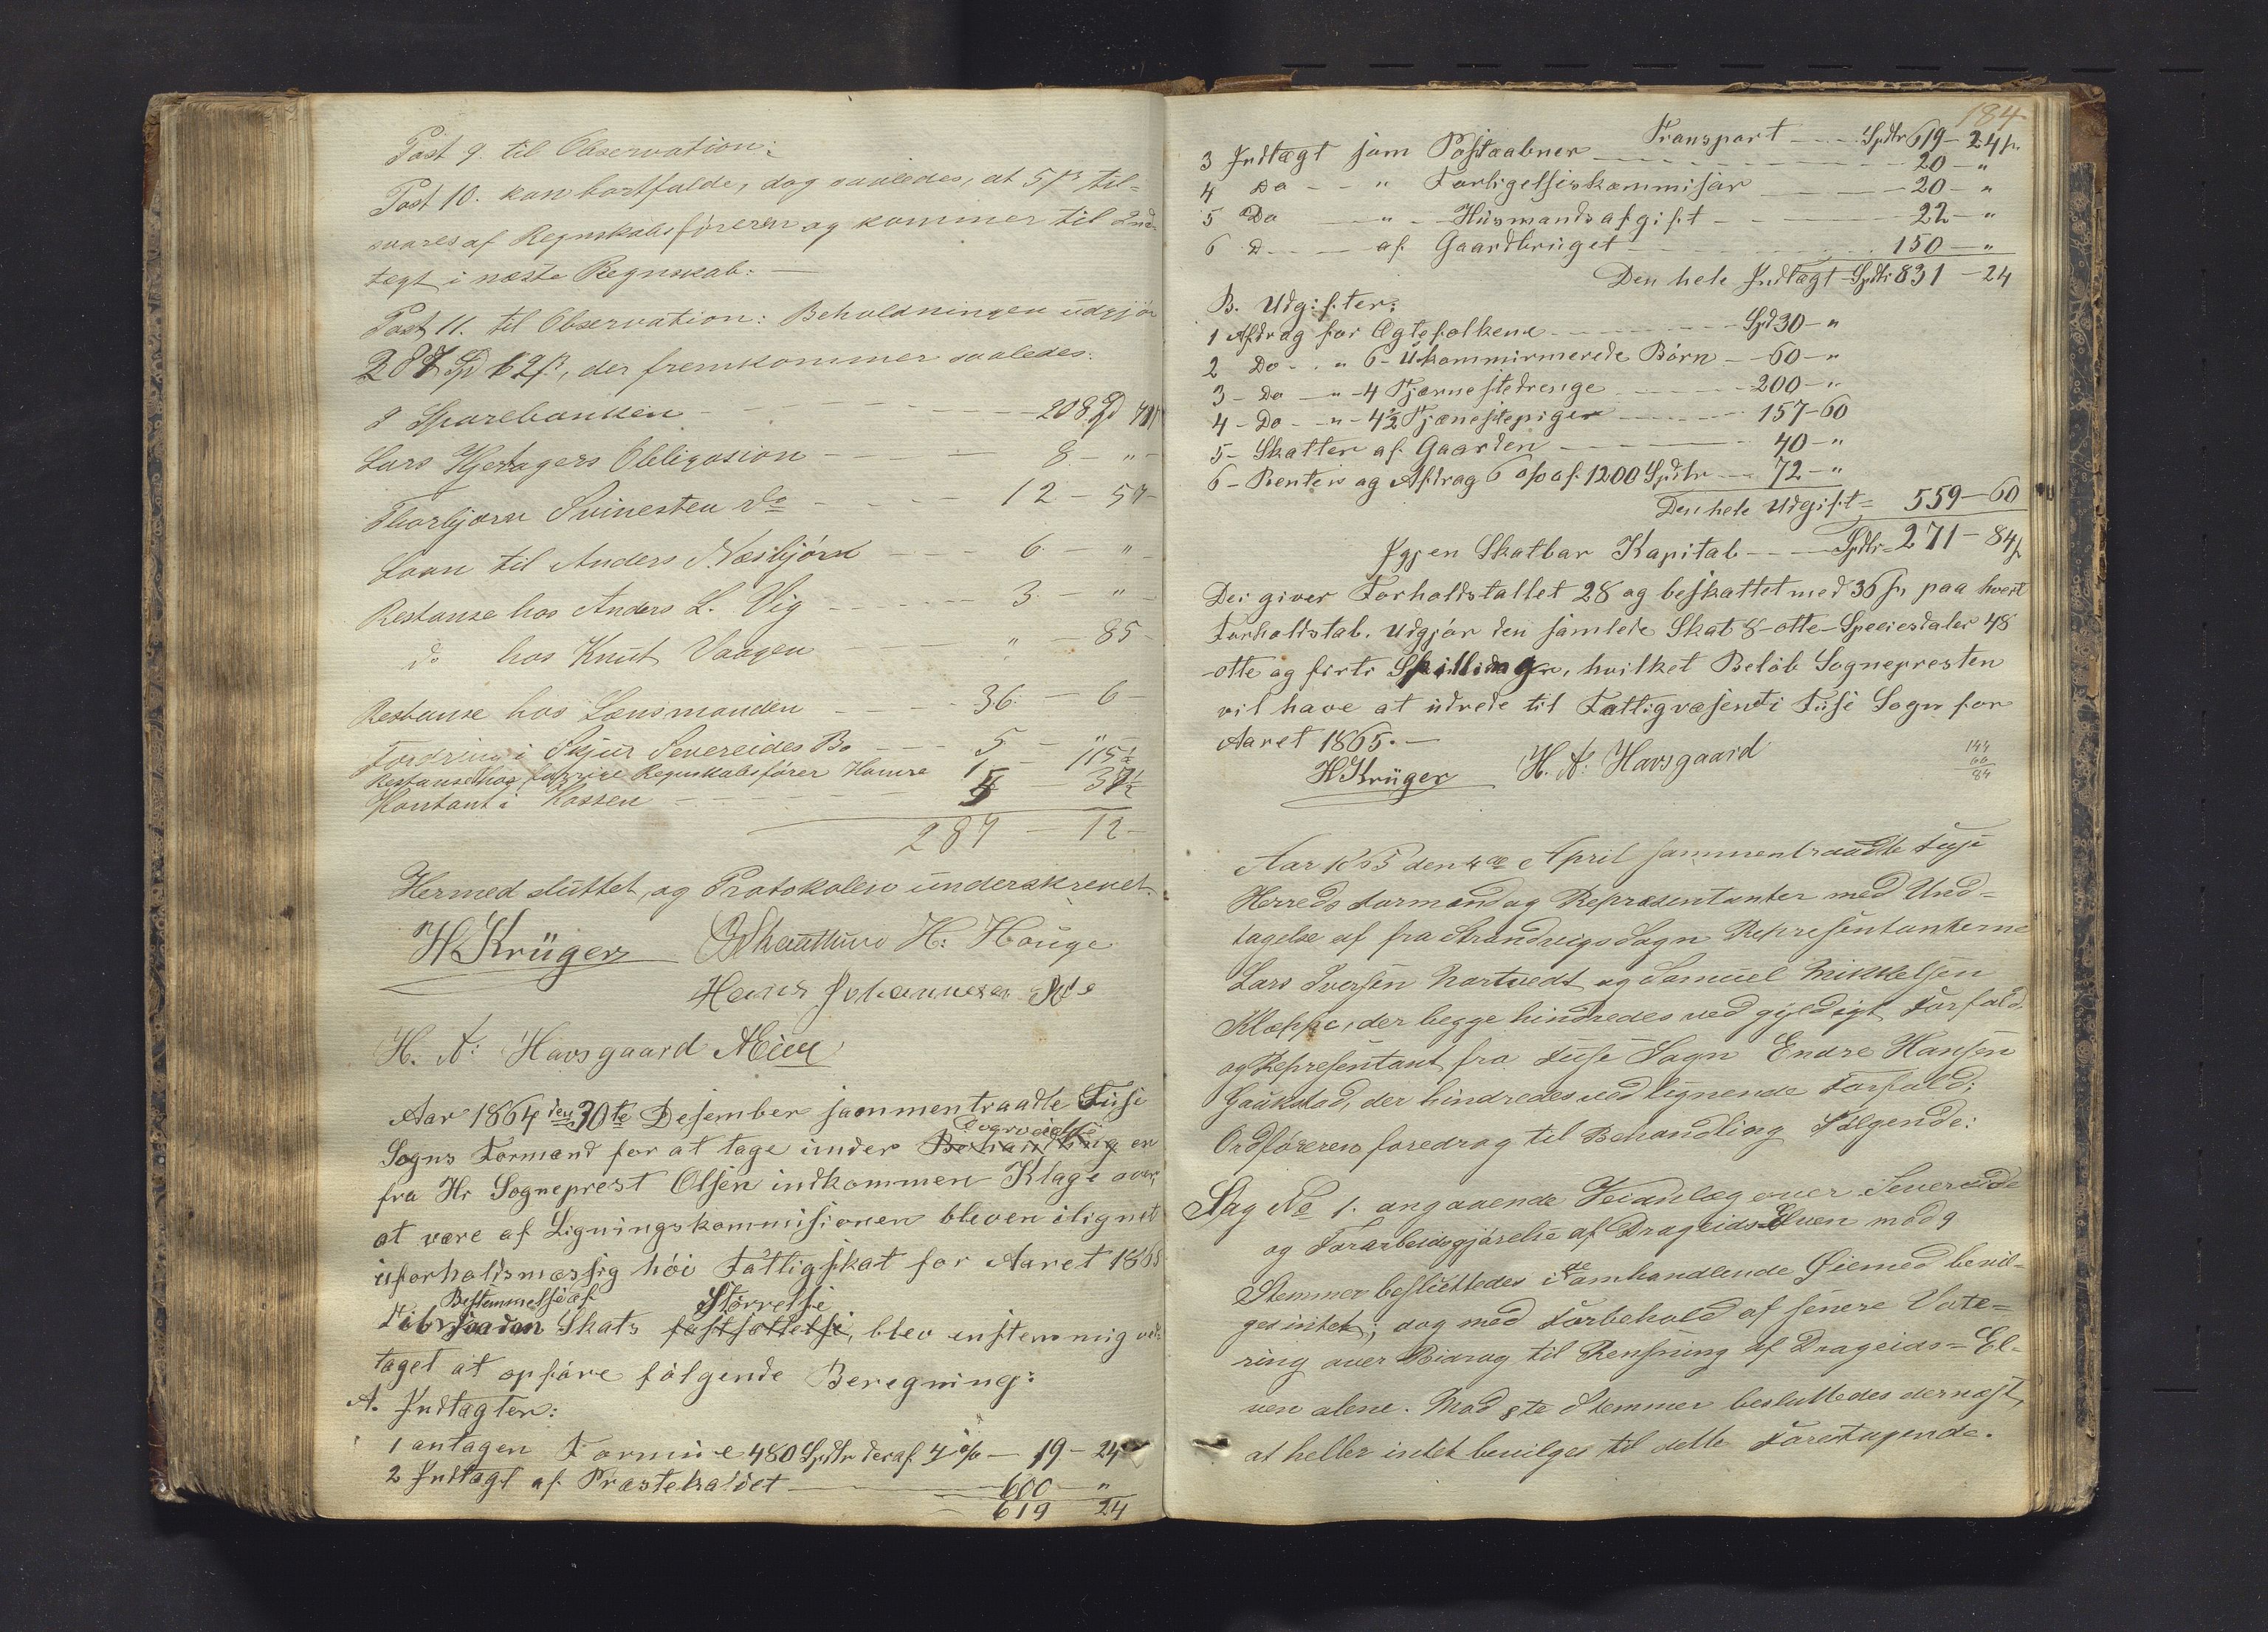 Post 9. til Observation:
Post 10. kan bortfalde, dog saaledes, at 5 β til-
svares af Regnskabsföreren og kommer til Ind-
tegt i næste Regnskab. —
Post 11. til Observation: Beholdningen udgjör
287 Spd 12 β, der fremkommer saaledes:
I Sparebanken — 208 Spd
Lars Hjertagers Obligasion — 8 - "
Thorbjørn Svinesteu do — 12 - 57
Laan til Anders Nesbjörn — 6 - "
Restanse hos Anders L. Vig — 3 - "
do hos Knut Vaagen — " - 85
Restanse hos Lensmanden — 36 - 6
Fordring i Sjur Severeides Bo — 5 - "
Restanse hos forrige Regnskabsfører Hamre 1 - 115½
Kontant i Kassen — 5 - 37½
287 - 12
Hermed sluttet, og Protokolen underskrevet.
H Krüger H: Hauge
Hans Johannesen
H. N: Havsgaard
Aar 1864 den 30te Desember sammentraadte Fuse
Overveielse
Sogns Formænd for at tage under Behandling en
fra Hr Sogneprest Olsen indkommen Klage over,
at være af Ligningskommisionen bleven ilignet
uforholdsmæssig höi Fattigskat for Aaret 1865
Bestemmelse af Störrelse
Til saadan Skats fastsættelse, blev enstemmig ved-
taget at opföre fölgende Beregning:
A. Indtægter:
1 antagen Formue 480 Spdlr deraf 4 % — 19 - 24
2 Indtægt af Præstekaldet — 600 "
619 24
184
Transport — Spdlr 619 - 24 β
3 Indtægt som Postaabner — 20 - "
4 Do — " Forligelseskommisær — 20 - "
5 Do — " — Husmandsafgift — 22 - "
6 D — af Gaardbruget — 150 - "
Den hele Indtægt Spdlr 831 - 24
B. Udgifter:
1 Afdrag for Ægtefolkene — Spd 30 - "
2 Do - " 6 - Ukommirmerede Börn — 60 - "
3 - Do - " - 4 Tjænestedrenge — 200 - "
4 - Do - " - 4½ Tjænestepiger — 157 - 60
5 - Skatter af Gaarden — 40 - "
6 - Renter og Afdrag 6 % af 1200 Spdlr — 72 - "
Den hele Udgift = 559 - 60
Igjen Skatbar Kapital — Spdlr = 271 - 84 β
Der giver Forholdstallet 28 og beskattet med 36 β paa hvert
Forholdstal. Udgjör den samlede Skat 8 - otte - Speciesdaler 48
-otte og firti Skillinger, hvilket Belöb Sognepresten
vil have at udrede til Fattigvæsenet i Fuse Sogn for
Aaret 1865. —
H Krüger H. N: Havsgaard
144
60
84
Aar 1865 den 4de April sammentraadte Fuse
Herreds Formænd og Representanter med Und-
tagelse af fra Strandvigs Sogn Representanterne
Lars Iversen Hartvedt og Samuel Mikkelsen
Klæppe, der begge hindredes ved gyldigt Forfald,
og Representant fra Fuse Sogn Endre Hansen
Gaukstad, der hindredes ved lignende Forfald:
Ordföreren foredrog til Behandling Fölgende:
Sag No 1. angaaende Veianlæg over Severeide
og Forarbeidsgjörelse af Drageids-Elven mod 9
de
Stemmer besluttedes i omhandlende Øiemed bevil-
ges intet; dog med Forbehold af senere Vote-
ring over Bidrag til Rensning af Drageids-El-
ven alene. Mod 8te Stemmer besluttedes dernæst,
at heller intet bevilges til dette Foretagende.